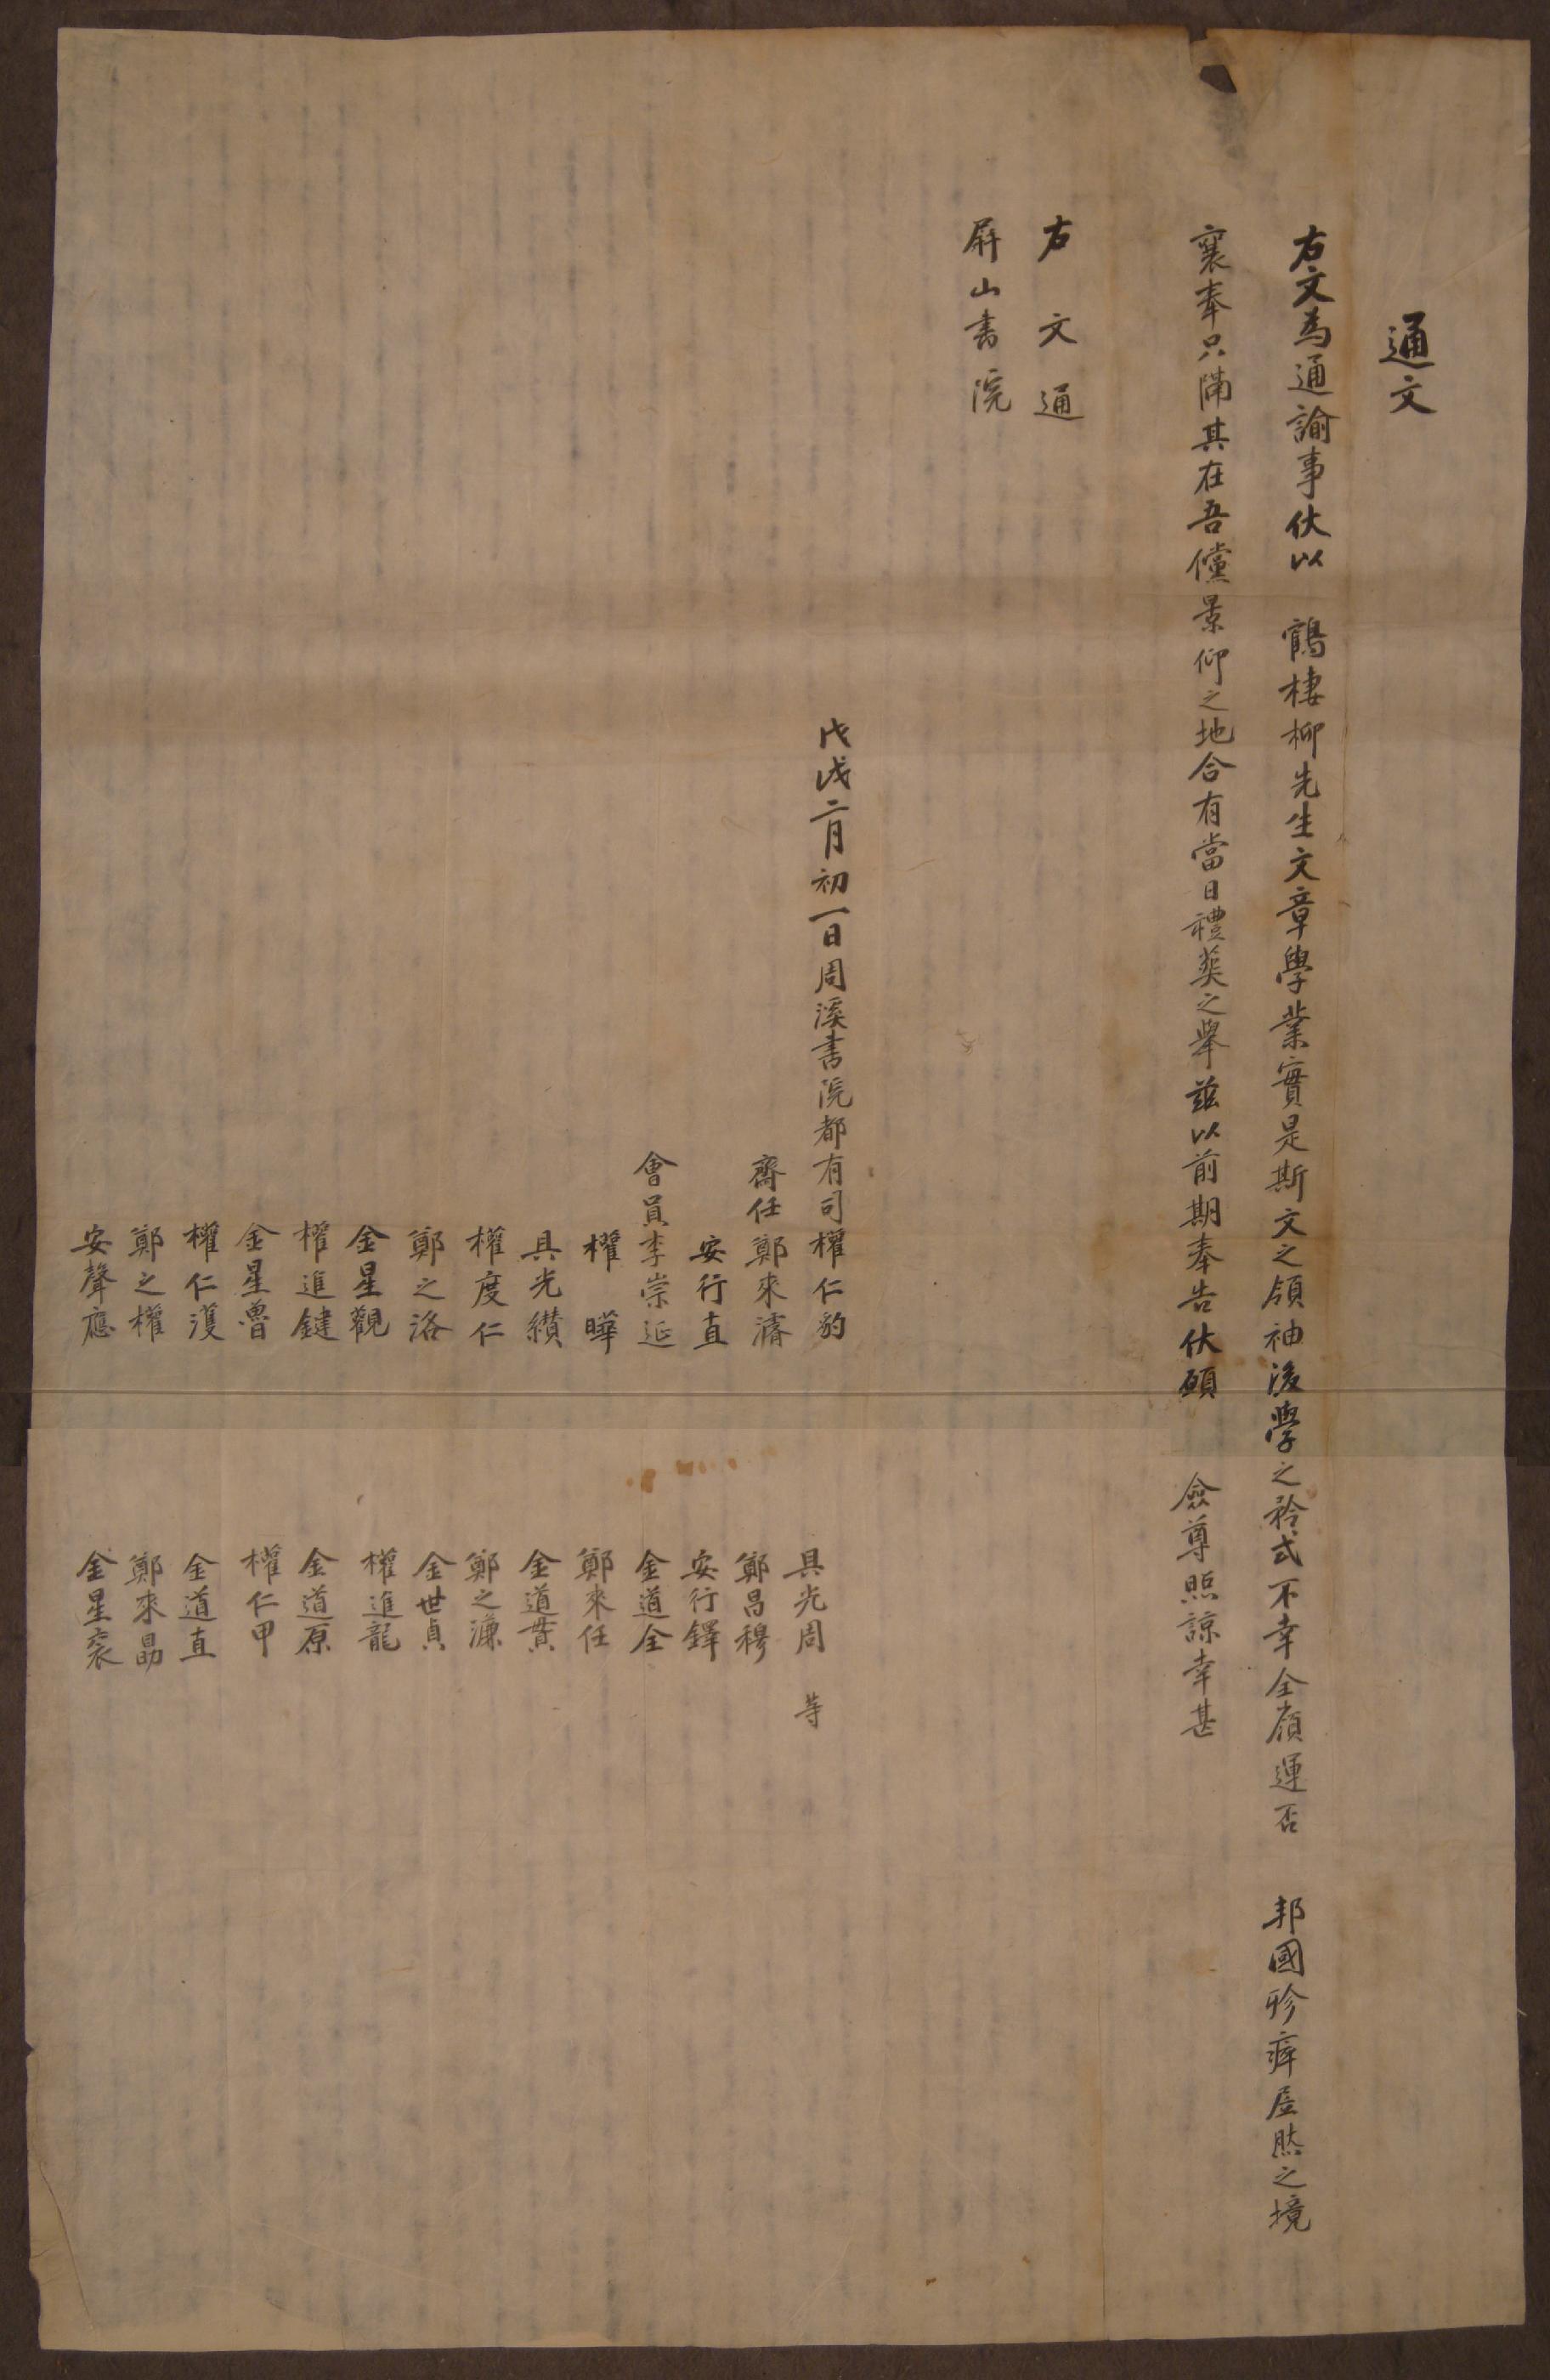 通文
右文爲通諭事伏以 鶴棲柳先生文章學業實是斯文之領袖後學之矜式不幸全嶺運否 邦國殄瘁奄然之境
襄奉只隔其在吾儻景仰之地合有當日禮奠之擧玆以前期奉告伏願 僉尊照諒幸甚
右文通
屛山書院
戊戌二月初一日周溪書院都有司權仁豹
齋任鄭來濬
安行直
會員李崇延
權 曄
具光纘
權度仁
鄭之洛
金星觀
權進鍵
金星魯
權仁濩
鄭之權
安聲應
具光周 等
鄭昌穆
安行鐸
金道全
鄭來任
金道貫
鄭之濂
金世貞
權進龍
金道原
權仁甲
金道直
鄭來勗
金星袞